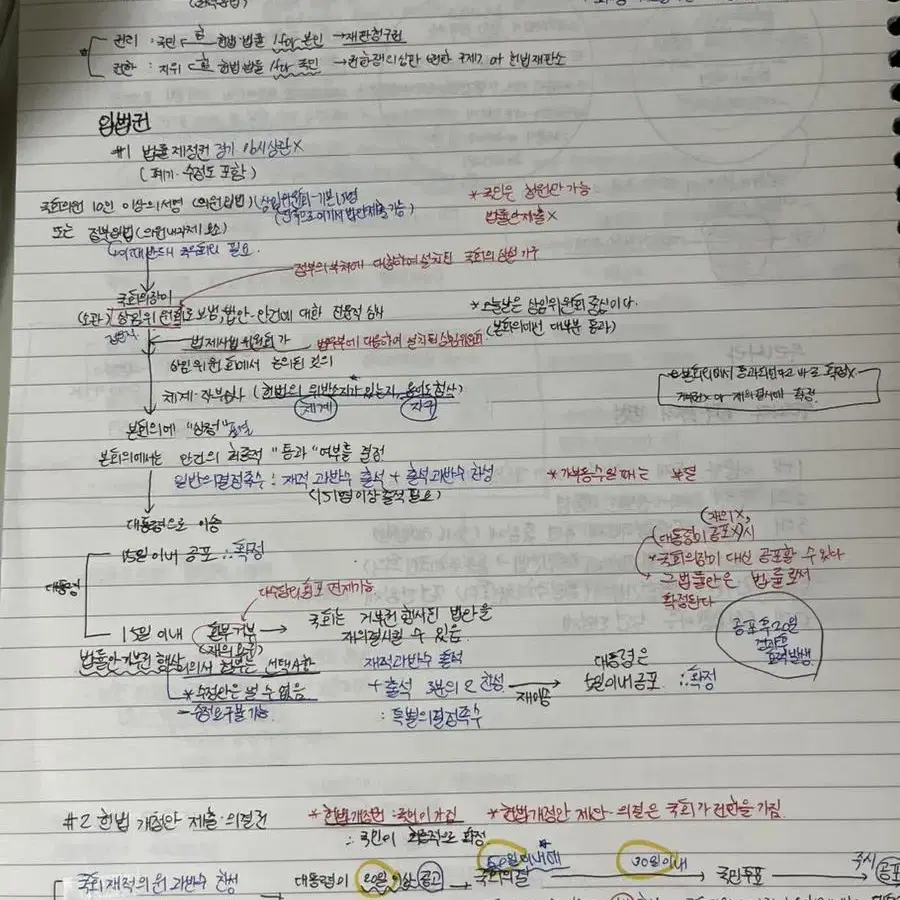 권리 : 국민 헌법·법률 for 본인 → 재판청구권
권한 : 지위 헌법·법률 for 국민 → 권한쟁의심판 (권한 구제) at 헌법재판소
입법권
#1 법률 제정권 정기 임시 상관X
(폐기·수정도 포함)
국회의원 10인 이상의 서명 (의원입법) (상임위원회
*국민은 청원만 가능
법률안 제출X
또는 정부입법 (의원내각제 요소)
국무회의 필요
정부의 부처에 대응하여 설치된 국회의 상설 기구
국회의장이
(소관) 상임위원회로 보냄, 법안·안건에 대한 전문적 심사
*오늘날은 상임위원회 중심이다.
(본회의에선 대부분 통과)
법제사법위원회가 법무부에 대응하여 설치된 상임위원회
상임위원회에서 논의된 것의
체계·자구심사 (헌법의 위반소지가 있는지, 용어도 심사)
체계 자구
본회의에서 통과되었다고 바로 확정X
거부권X or 재의결시에 확정
본회의에 "상정"
본회의에서는 안건의 최종적 "통과"여부를 결정
일반의결정족수 : 재적 과반수 출석 + 출석 과반수 찬성 *가부동수일 때는 부결
(151명 이상 출석 필요)
대통령으로 이송
(재의X,
대통령이 공포X)시
*국회의장이 대신 공포할 수 있다
그 법률안은 법률로서
확정된다
대통령
15일 이내 공포 ∴확정
공포 후 20일
경과후
효력발생
15일 이내 환부거부 → 국회는 거부권 행사된 법안을
(재의 요구) 재의결시킬 수 있음.
법률안거부권 행사
*수정안은 낼 수 없음
- 수정요구 불가능
재적과반수 출석
+ 출석 3분의 2 찬성
: 특별의결정족수
재이송
대통령은
5일이내 공포 ∴확정
#2 헌법 개정안 제출·의결권 *헌법개정권 : 국민이 가짐 *헌법개정안 제안·의결은 국회가 권한을 가짐
∴ 국민이 최종적으로 확정
국회재적의원 과반수 찬성 대통령이 20일 이상 공고 → 60일이내에 국회의결 → 30일이내 국민투표 → 즉시 공포